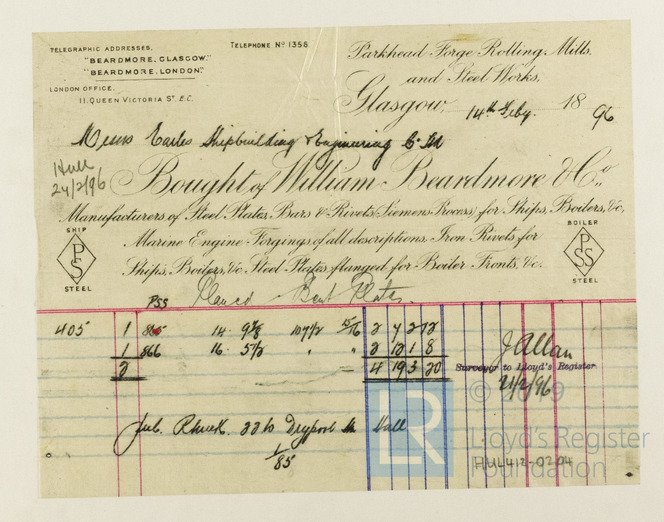 TELEGRAPHIC ADDRESSES,
"BEARDMORE, GLASGOW."
"BEARDMORE, LONDON."
LONDON OFFICE,
11, QUEEN VICTORIA ST. E.C.
TELEPHONE No 1358.
Parkhead Forge Rolling Mills,
and Steel Works,
Glasgow, 14th Feby. 1896
Messrs Earles Shipbuilding & Engineering Co Ltd
Hull
24/2/96
Bought of William Beardmore & Co.,
Manufacturers of Steel Plates, Bars & Rivets (Siemens Process) for Ships, Boilers, &c,
Marine Engine Forgings of all descriptions. Iron Rivets for
Ships, Boilers, &c. Steel Plates flanged for Boiler Fronts, &c.
SHIP
PSS
STEEL
BOILER
PSS
STEEL
PSS Planed Bent Plates
405 1 865 14 9 7/8 107 1/2 15/16 2 7 2 12
1 866 16 5 1/2 " " 2 12 1 8
2 4 19 3 20
J Allan
Surveyor to Lloyd's Register
21/2/96
to Drypool Hull
1/85
© 2019
LR
Lloyd's Register
Foundation
HUL412-0204